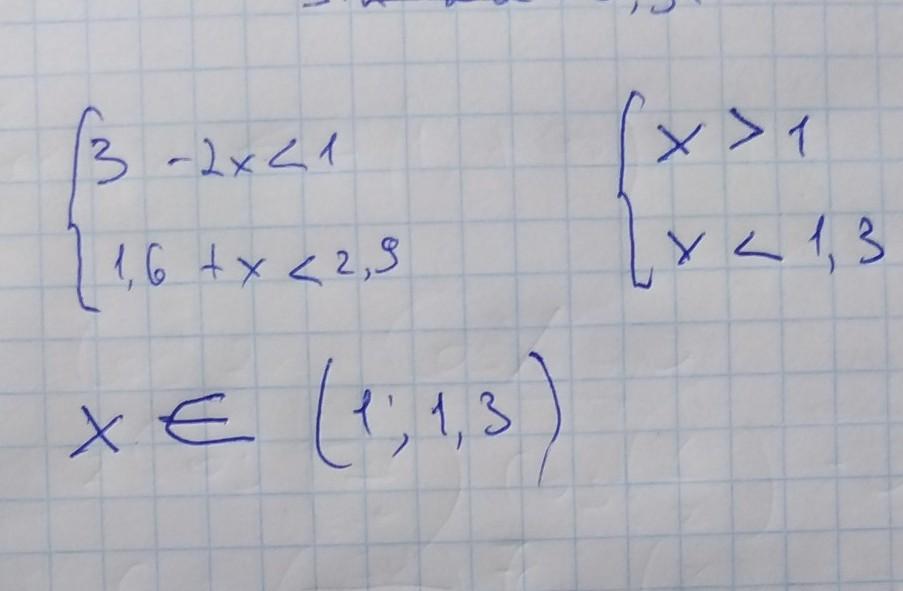 3 - 2x < 1
1,6 + x < 2,9
x > 1
x < 1,3
x ∈ (1; 1,3)